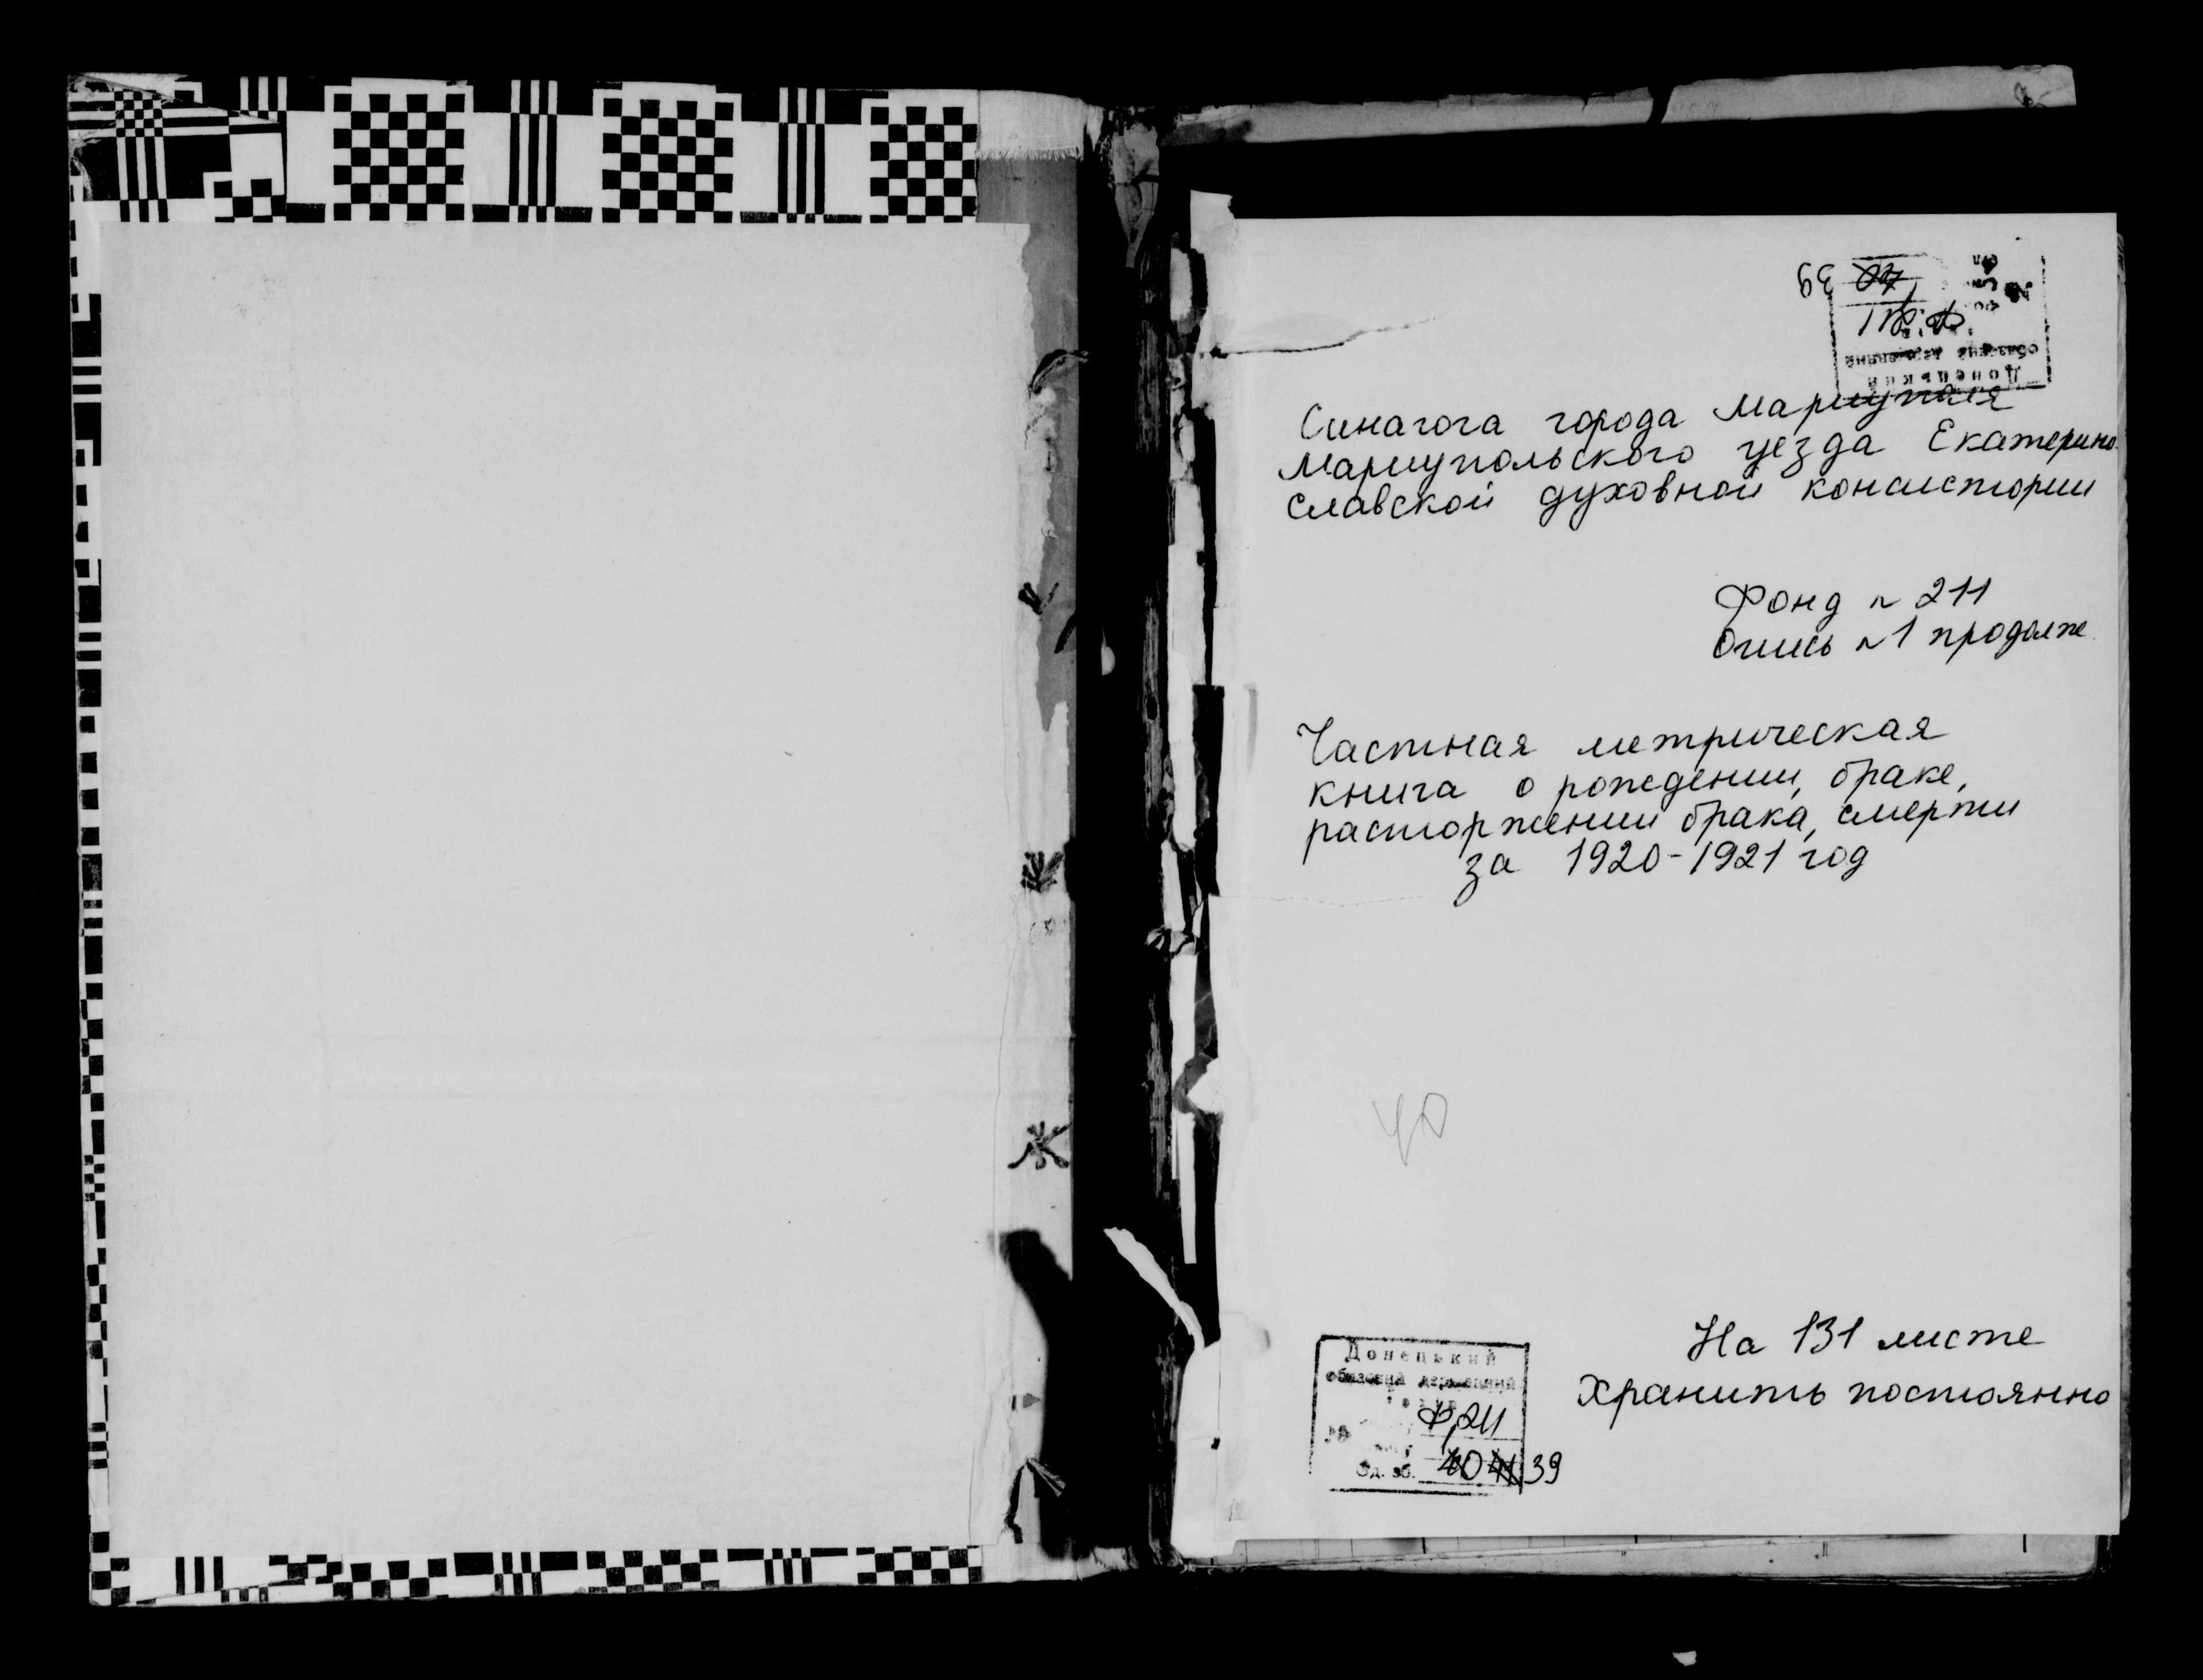 39
Синагога города Мариуполя
Мариупольского уезда Екатерино-
славской духовной консистории
Фонд n 211
Опись n 1 продолж.
Частная метрическая
книга о рождении, браке,
расторжении брака, смерти
за 1920-1921 год
40
На 131 листе
Хранить постоянно
Донецький
обласний державний
Ф. 211
Од. зб. 40 41 39